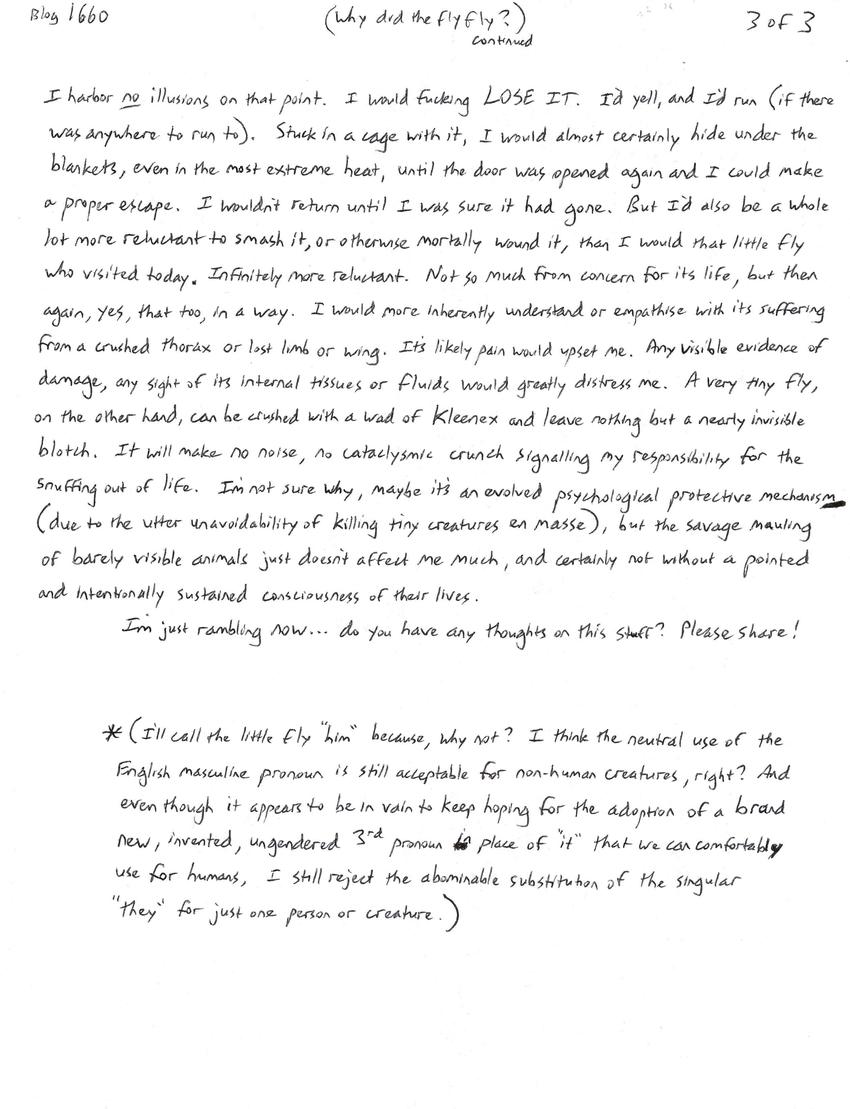 Blog 1660
(Why did the fly fly?)
continued
3 of 3
I harbor no illusions on that point. I would fucking LOSE IT. I'd yell, and I'd run (if there
was anywhere to run to). Stuck in a cage with it, I would almost certainly hide under the
blankets, even in the most extreme heat, until the door was opened again and I could make
a proper escape. I wouldn't return until I was sure it had gone. But I'd also be a whole
lot more reluctant to smash it, or otherwise mortally wound it, than I would that little fly
who visited today. Infinitely more reluctant. Not so much from concern for its life, but then
again, yes, that too, in a way. I would more inherently understand or empathise with its suffering
from a crushed thorax or lost limb or wing. It's likely pain would upset me. Any visible evidence of
damage, any sight of its internal tissues or fluids would greatly distress me. A very tiny fly,
on the other hand, can be crushed with a wad of Kleenex and leave nothing but a nearly invisible
blotch. It will make no noise, no cataclysmic crunch signalling my responsibility for the
snuffing out of life. I'm not sure why, maybe it's an evolved psychological protective mechanism
(due to the utter unavoidability of killing tiny creatures en masse), but the savage mauling
of barely visible animals just doesn't affect me much, and certainly not without a pointed
and intentionally sustained consciousness of their lives.
I'm just rambling now... do you have any thoughts on this stuff? Please share!
* (I'll call the little fly "him" because, why not? I think the neutral use of the
English masculine pronoun is still acceptable for non-human creatures, right? And
even though it appears to be in vain to keep hoping for the adoption of a brand
new, invented, ungendered 3rd pronoun in place of "it" that we can comfortably
use for humans, I still reject the abominable substitution of the singular
"they" for just one person or creature.)